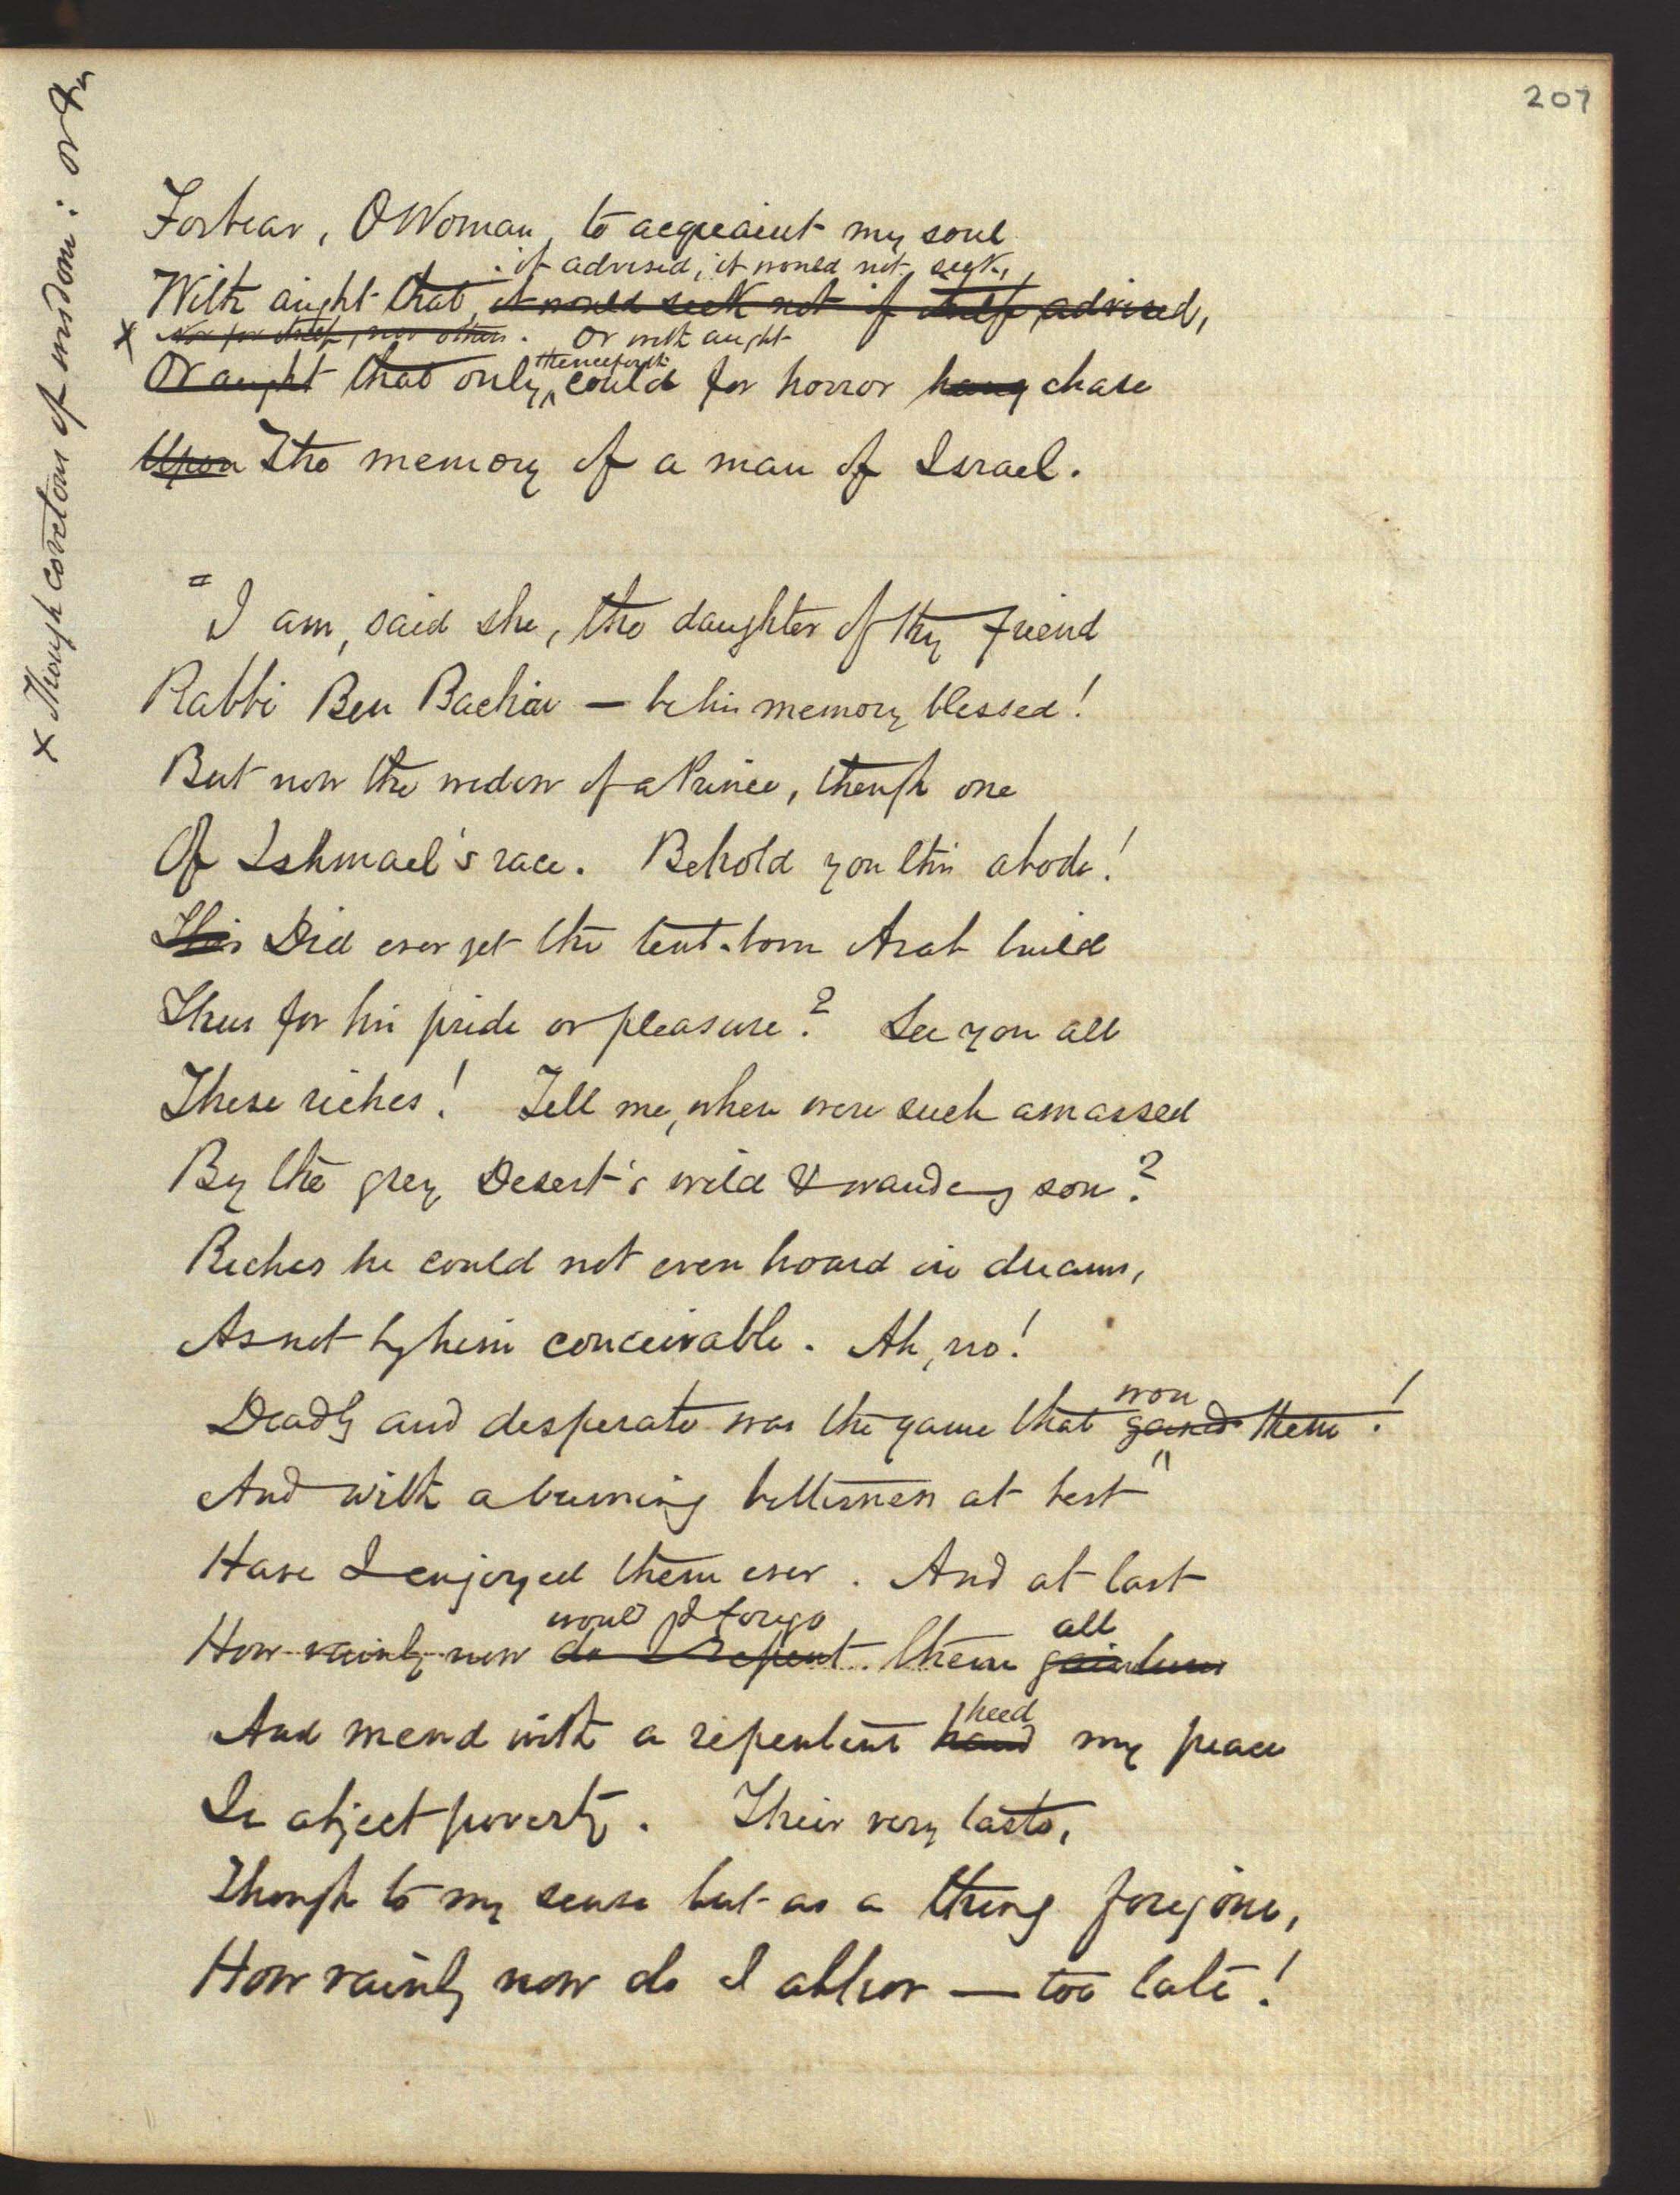 207
Forbear, O Woman, to acquaint my soul
if advised, it would not seek,
With aught that it would seek not if itself advised,
x Nor for itself, nor others. Or with aught
thenceforth
Or aught that only could for horror hang chase
Upon The memory of a man of Israel.
"I am, said she, the daughter of thy friend
Rabbi Ben Bachai — be his memory blessed!
But now the widow of a Prince, though one
Of Ishmael's race. Behold you this abode!
This Did ever yet the tent-born Arab build
Thus for his pride or pleasure? See you all
These riches! Tell me, when were such amassed
By the grey Desert's wild & wandering son?
Riches he could not even hoard in dreams,
As not by him conceivable. Ah, no!
won
Deadly and desperate was the game that gained them!
And with a burning bitterness at best
Have I enjoyed them ever. And at last
would I forgo all
How vainly now do I repent them
heed
And mend with a repentent hand my peace
In abject poverty. Their very taste,
Though to my sense but as a thing foregone,
How vainly now do I abhor — too late!
x Though covetous of wisdom: or for